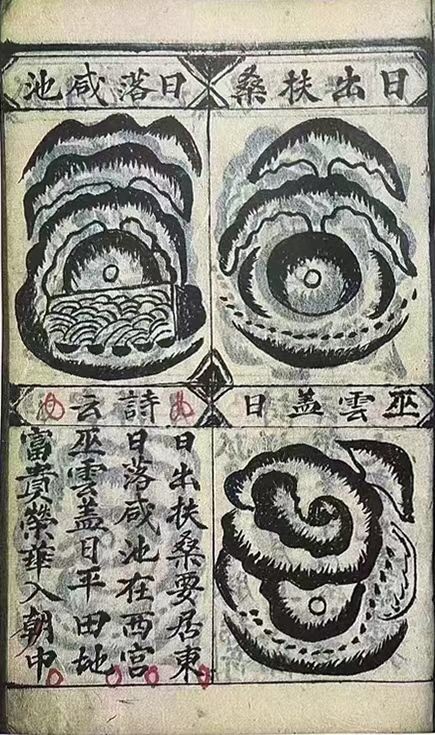 日出扶桑
日落咸池
巫雲盖日
詩云
日出扶桑要居東
日落咸池在西宮
巫雲盖日平田地
富貴榮華入朝中